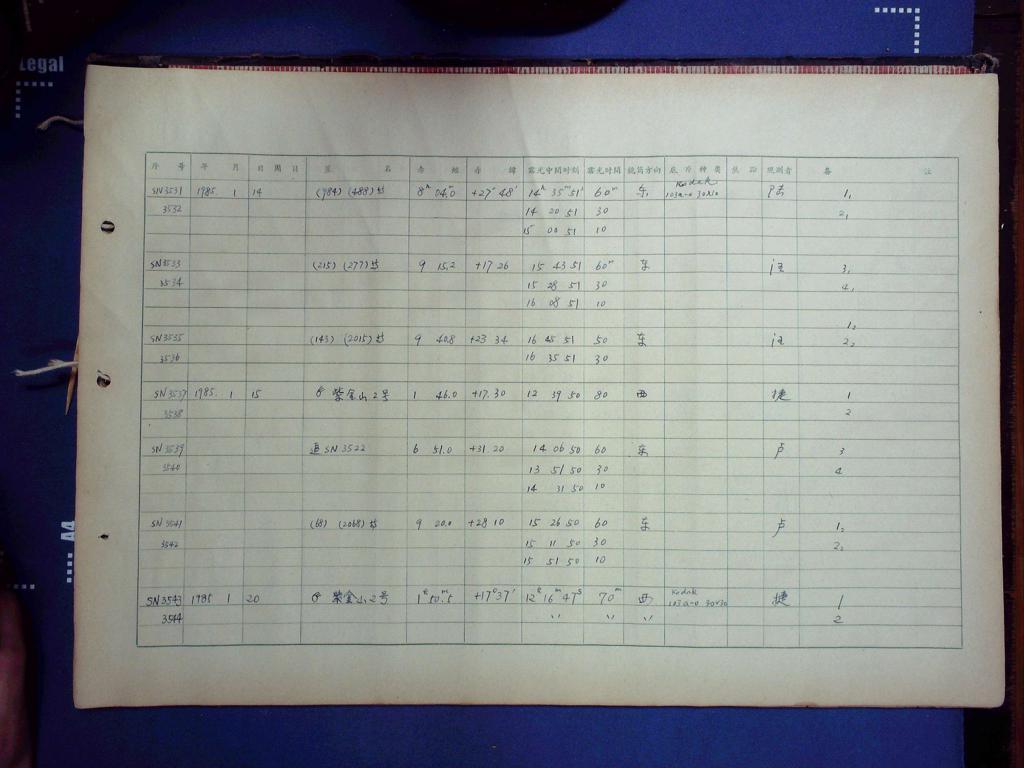 Legal
A4
片 号 年 月 日 周 日 星 名 赤 經 赤 緯 露光中間时刻 露光时间 鏡筒方向 底片种类 觀測者 备 註
SN3531 1985. 1 14 (984) (488) 8ʰ 04ᵐ.0 +27° 48′ 14ʰ 35ᵐ 51ˢ 60ᵐ 东 Kodak 103a-o 30x30 陆 1,
3532 14 20 51 30 2,
15 00 51 10
SN3533 (215) (277) 9 15.2 +17 26 15 43 51 60ᵐ 东 汪 3,
3534 15 28 51 30 4,
16 08 51 10
1₂
SN3535 (143) (2015) 9 40.8 +23 34 16 45 51 50 东 汪 2₂
3536 16 35 51 30
SN3537 1985. 1 15 紫金山2号 1 46.0 +17.30 12 39 50 80 西 捷 1
3538 2
SN3539 追SN3522 6 51.0 +31.20 14 06 50 60 东 卢 3
3540 13 51 50 30 4
14 31 50 10
SN3541 (68) (2068) 9 20.0 +28 10 15 26 50 60 东 卢 1₂
3542 15 11 50 30 2₂
15 51 50 10
SN3543 1985 1 20 紫金山2号 1ʰ 50ᵐ.5 +17° 37′ 12ʰ 16ᵐ 47ˢ 70ᵐ 西 Kodak 103a-o 30x30 捷 1
3544 〃 〃 〃 2